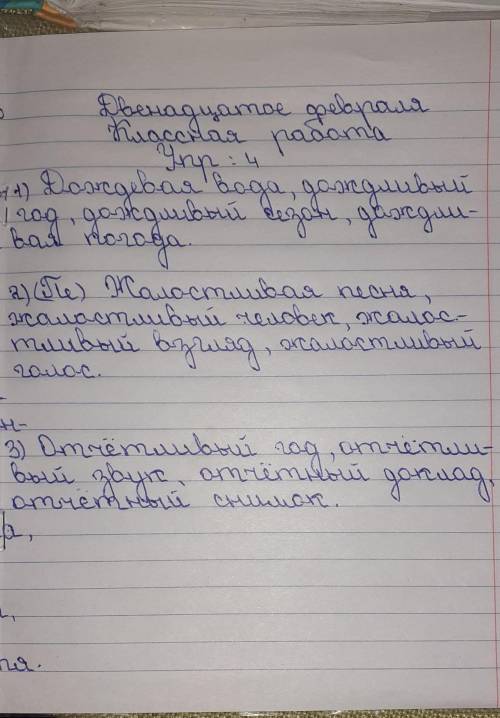 Двенадцатое февраля
Классная работа
Упр: 4
1) Дождевая вода, дождливый
год, дождливый сезон, дождли-
вая погода.
2) (Пе) Жалостливая песня,
жалостливый человек, жалос-
тливый взгляд, жалостливый
голос.
н-
3) Отчётливый год, отчётли-
вый звук, отчётный доклад,
отчётный снимок.